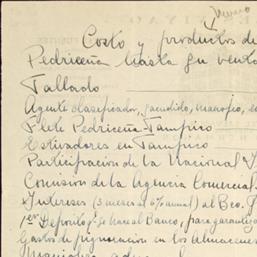 Costo y productos de
Pedriceña hasta su vent
Tallado
Agente clasificador, sacudido, manojeo,
Flete Pedriceña-Tampico
Estivadores en Tampico
Participación de la Nacional
Comisión de la Agencia Comercial
Intereses (3 meses al 6% anual) al Bco.
1er Depósito que hace al Banco, para garantiz
Gastos de pignoración en los Almacenes